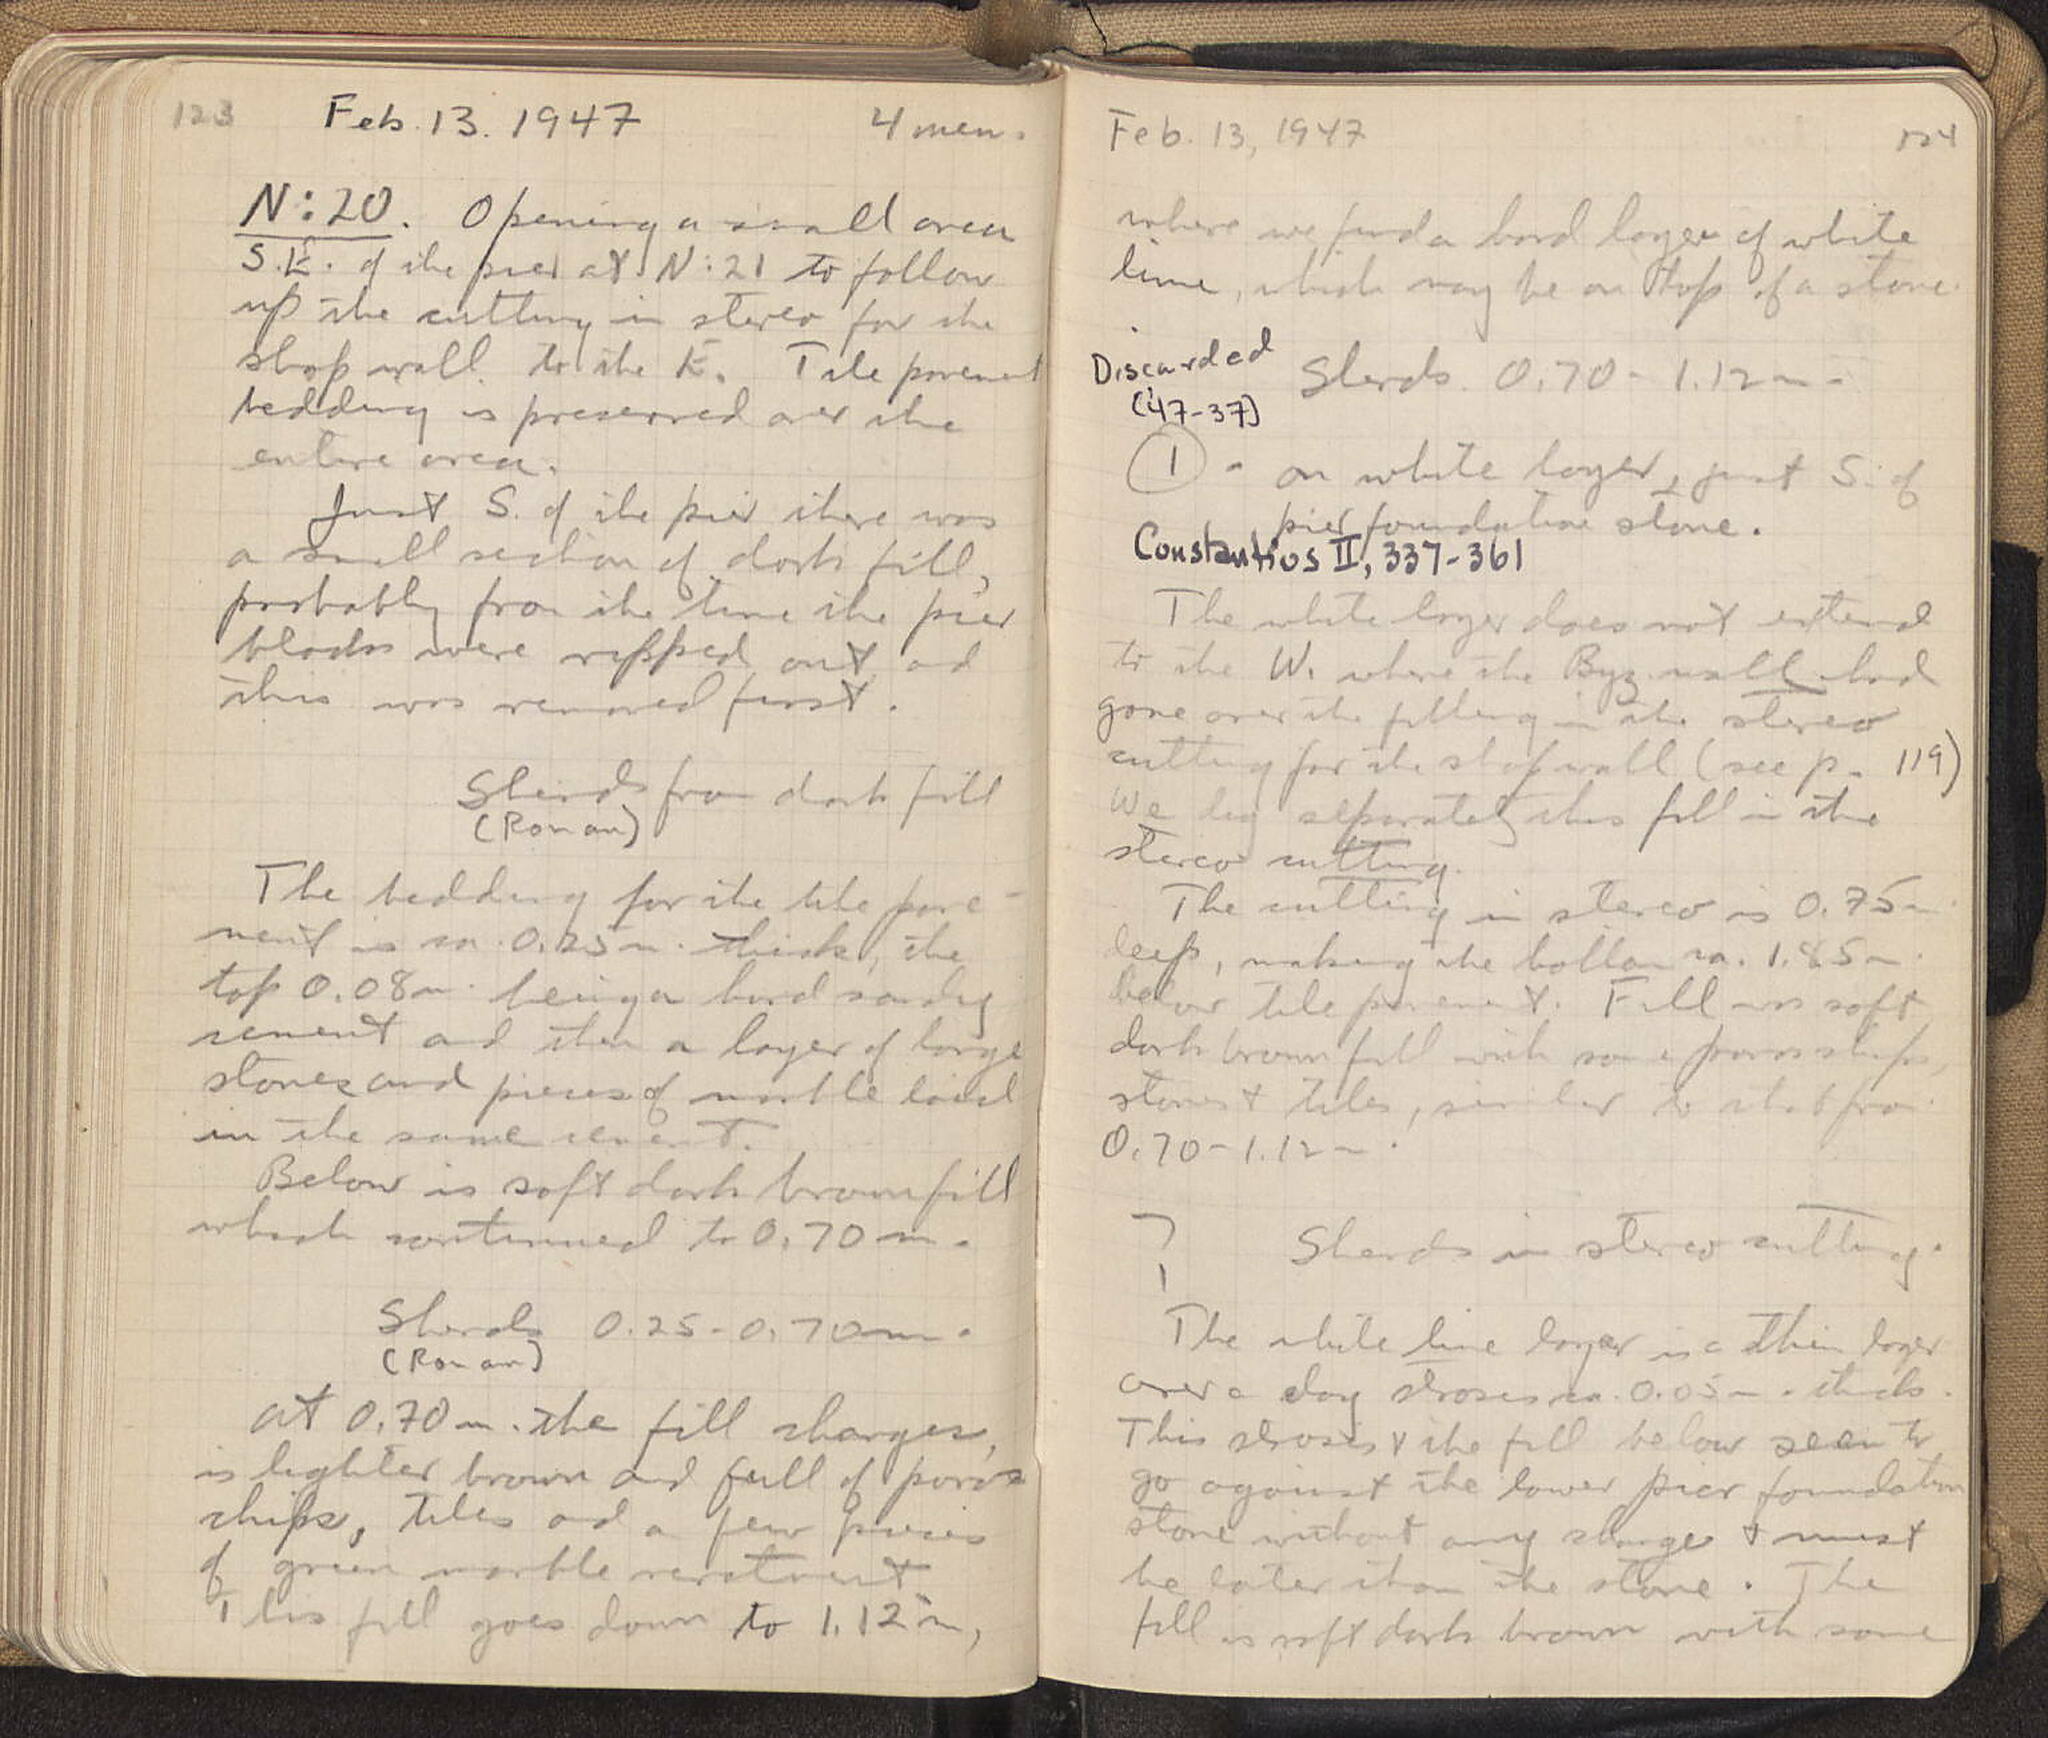 123 Feb. 13. 1947 4 men.
N:20. Opening a small area
S.E. of the pier at N:21 to follow
up the cutting in stereo for the
shop wall to the E. Tile pavement
bedding is preserved over the
entire area.
Just S. of the pier there was
a small section of dark fill,
probably from the time the pier
blocks were ripped out, and
this was removed first.
Sherds from dark fill
(Roman)
The bedding for the tile pave-
ment is ca. 0.25 m. thick, the
top 0.08 m. being a hard sandy
cement and then a layer of large
stones and pieces of marble laid
in the same cement.
Below is soft dark brown fill
which continued to 0.70 m.
Sherds 0.25-0.70 m.
(Roman)
At 0.70 m. the fill changes,
is lighter brown and full of poros
chips, tiles and a few pieces
of green marble revetment.
This fill goes down to 1.12 m,
Feb. 13, 1947 124
where we find a hard layer of white
lime, which may be on top of a stone.
Discarded
('47-37)
Sherds. 0.70-1.12 m.
① - on white layer, just S. of
pier foundation stone.
Constantios II, 337-361
The white layer does not extend
to the W. where the Byz. wall had
gone over the filling in the stereo
cutting for the shop wall (see p. 119)
We dig separately this fill in the
stereo cutting.
The cutting in stereo is 0.75 m.
deep, making the bottom ca. 1.85 m.
below tile pavement. Fill was soft
dark brown fill with some poros chips,
stones & tiles, similar to that from
0.70-1.12 m.
? Sherds in stereo cutting.
The white lime layer is a thin layer
over a clay stroses ca. 0.05 m. thick.
This stroses & the fill below seem to
go against the lower pier foundation
stone without any change & must
be later than the stone. The
fill is soft dark brown with some